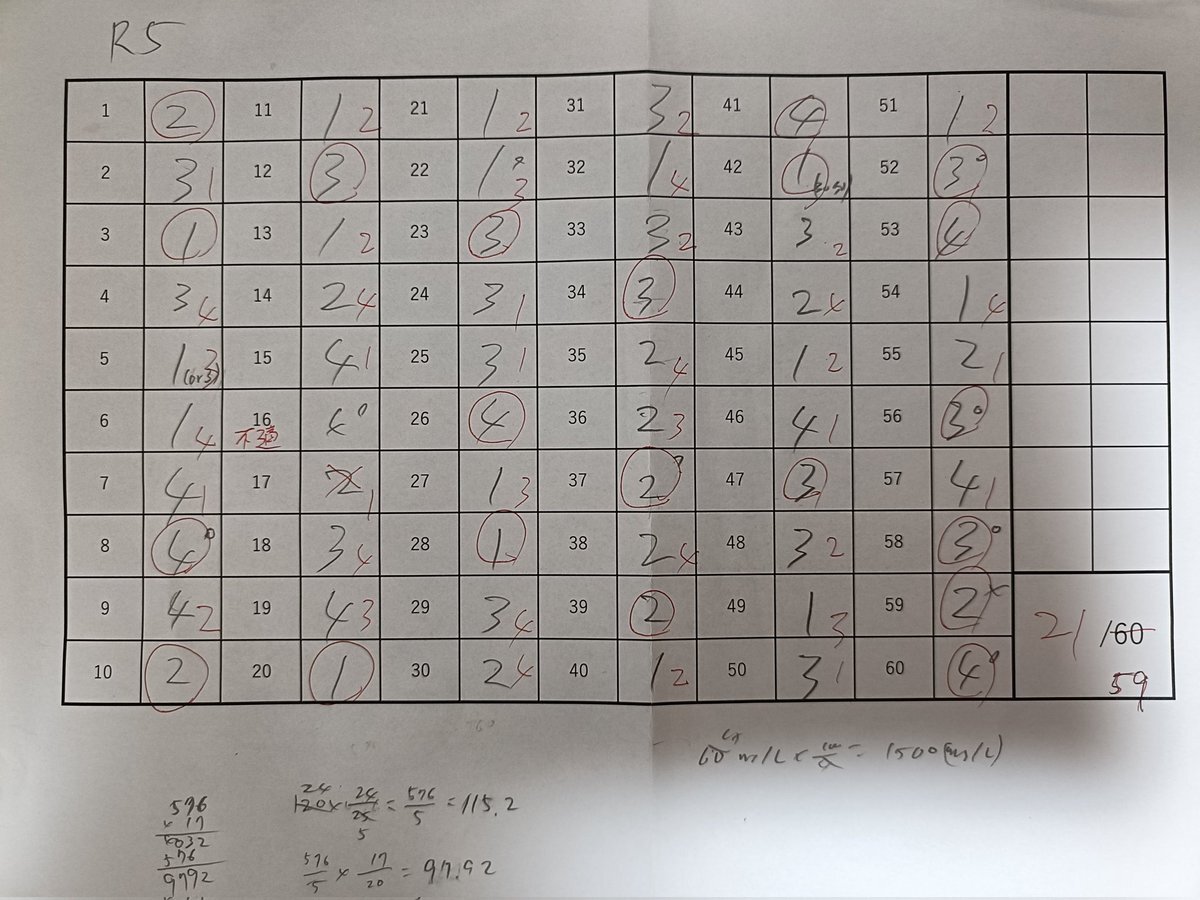 R5
1 2 11 1 2 21 1 2 31 3 2 41 4 51 1 2
2 3 1 12 3 22 1 3 32 1 4 42 1 52 3
3 1 13 1 2 23 3 33 3 2 43 3 2 53 4
4 3 4 14 2 4 24 3 1 34 3 44 2 4 54 1 4
5 1 3 (or3) 15 4 1 25 3 1 35 2 4 45 1 2 55 2 1
6 1 4 16 不適 26 4 36 2 3 46 4 1 56 3
7 4 1 17 2 1 27 1 3 37 2 47 3 57 4 1
8 4 18 3 4 28 1 38 2 4 48 3 2 58 3
9 4 2 19 4 3 29 3 4 39 2 49 1 3 59 2
10 2 20 1 30 2 4 40 1 2 50 3 1 60 4
21 /60
59
= 1500
576
× 17
4032
576
9792
24
120 × 24/25 = 576/5 = 115.2
5
576/5 × 17/20 = 97.92